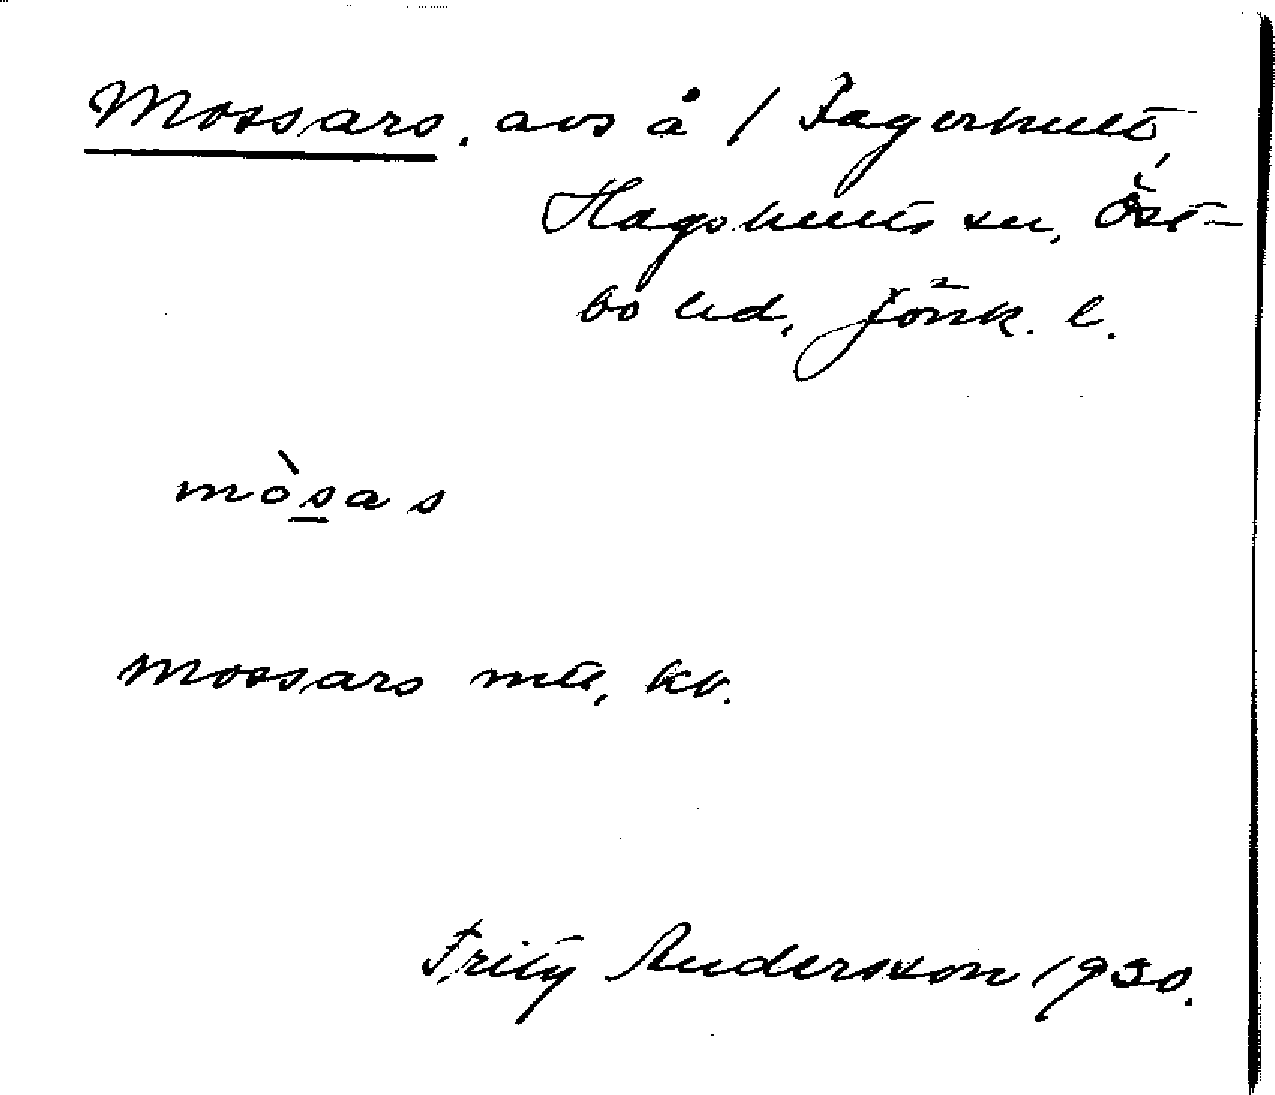 Mossars, avs å / Fagerhult,
Hagshults sn, Öst-
bo hd, Jönk. l.
mo`sas
Mossars mll, kv.
Fritz Andersson 1930.